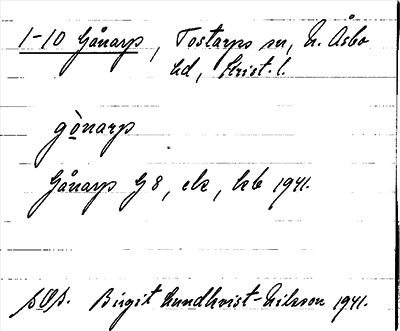 1-10 Gånarp, Tostarps sn, N. Åsbo
hd, Krist. l.
gònarp
Gånarp G 8, ek, kb 1941.
Birgit Lundkvist-Nilsson 1941.